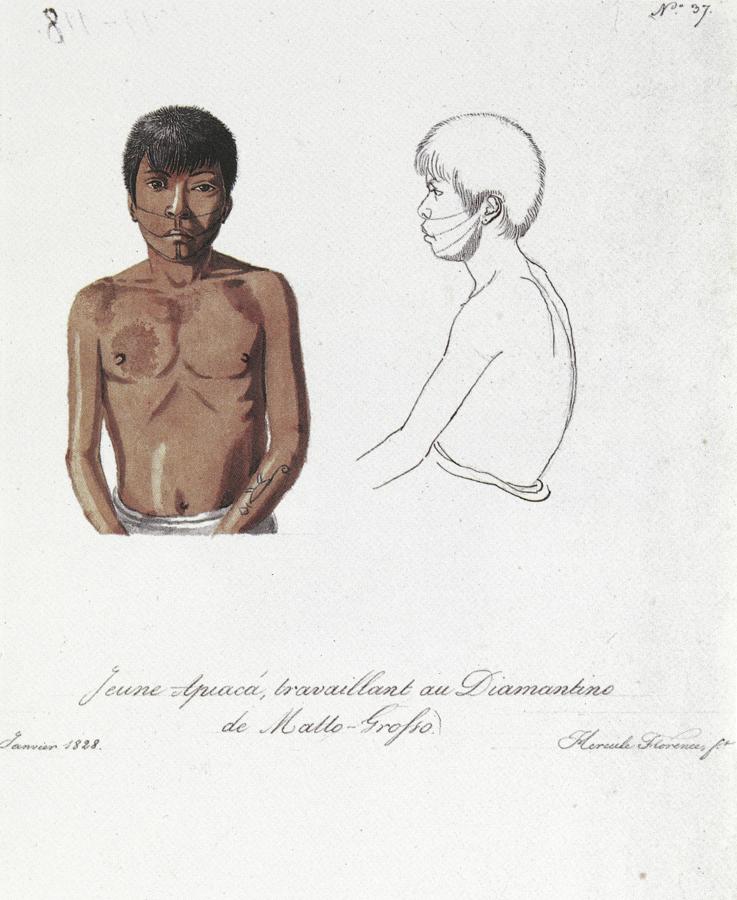 8
No. 37.
Jeune Apiacá, travaillant au Diamantino
de Matto-Grosso.
Janvier 1828.
Hercule Florence, ft